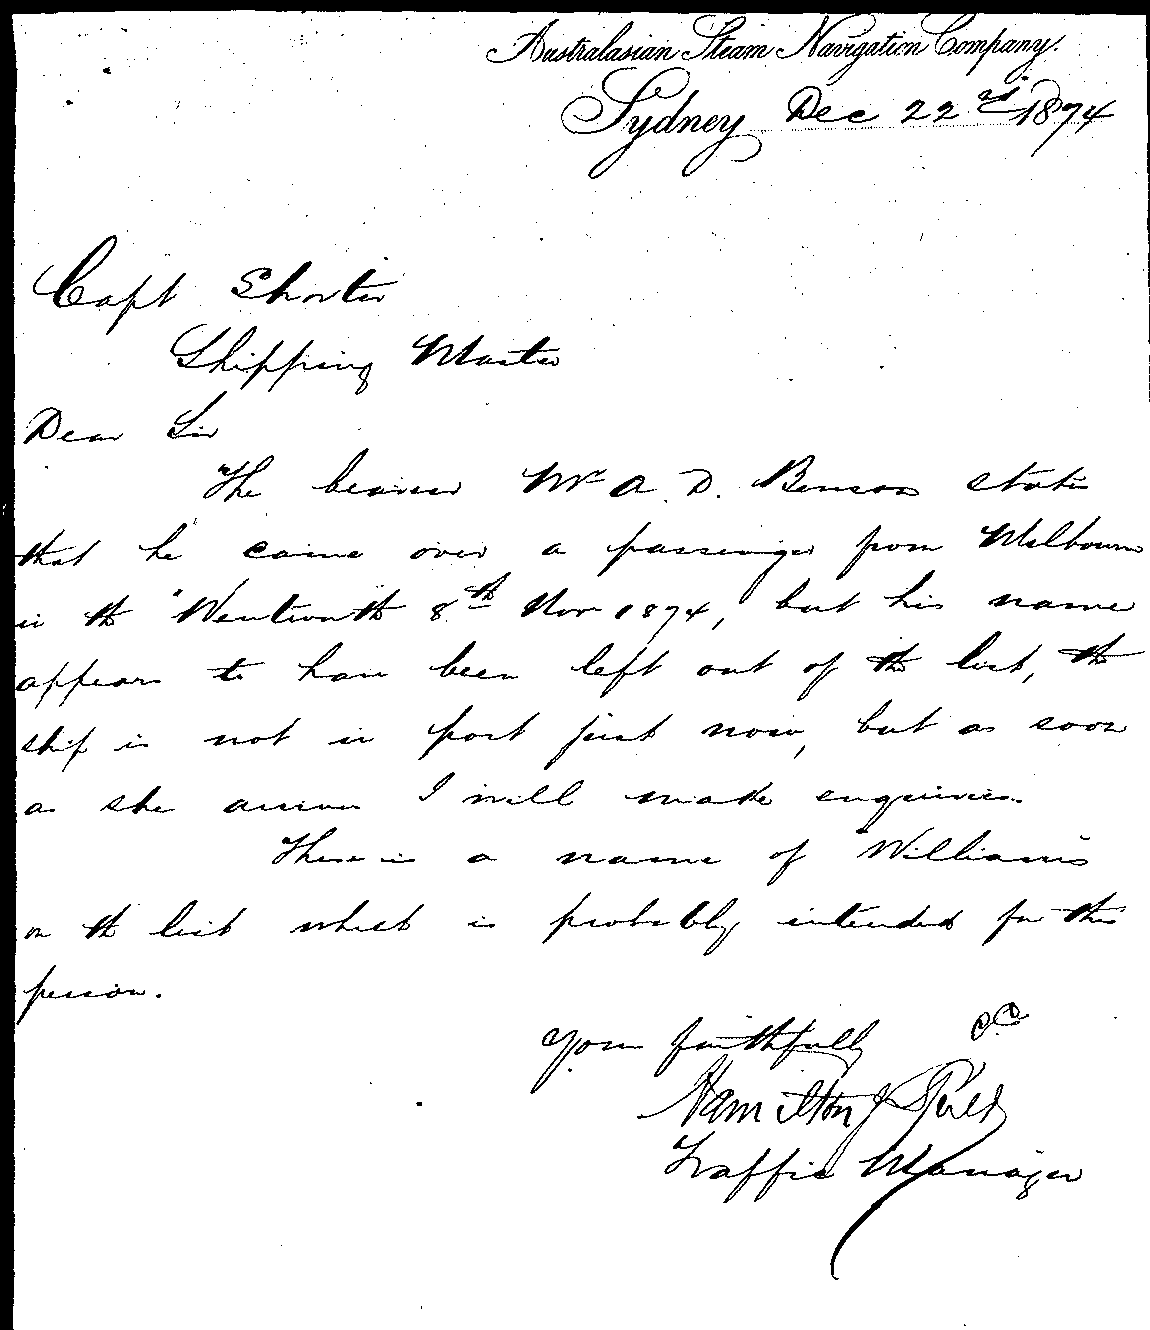 Australasian Steam Navigation Company.
Sydney Dec 22nd 1874
Capt Shorter
Shipping Master
Dear Sir
The bearer Mr A. D. Benson states
that he came over a passenger from Melbourne
in the "Wentworth 8th Nov 1874, but his name
appears to have been left out of the list, the
ship is not in port just now, but as soon
as she arrives I will make enquiries.
There is a name of "Williams"
on the list which is probably intended for this
person.
Yours faithfully
Hamilton J
Traffic Manager